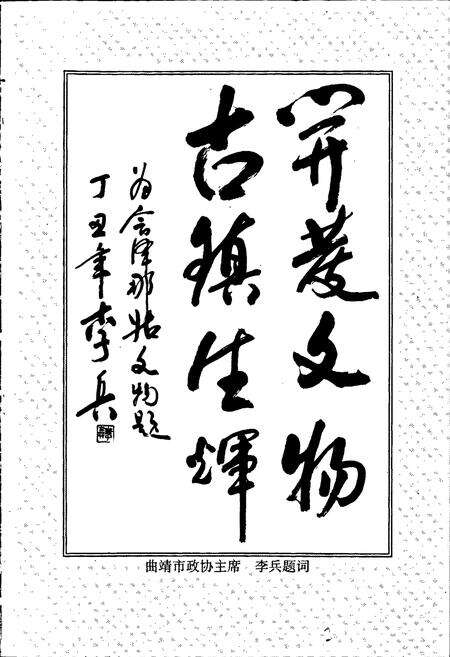 开发文物
古镇生辉
为会泽那姑文物题
丁丑年李兵
曲靖市政协主席 李兵题词